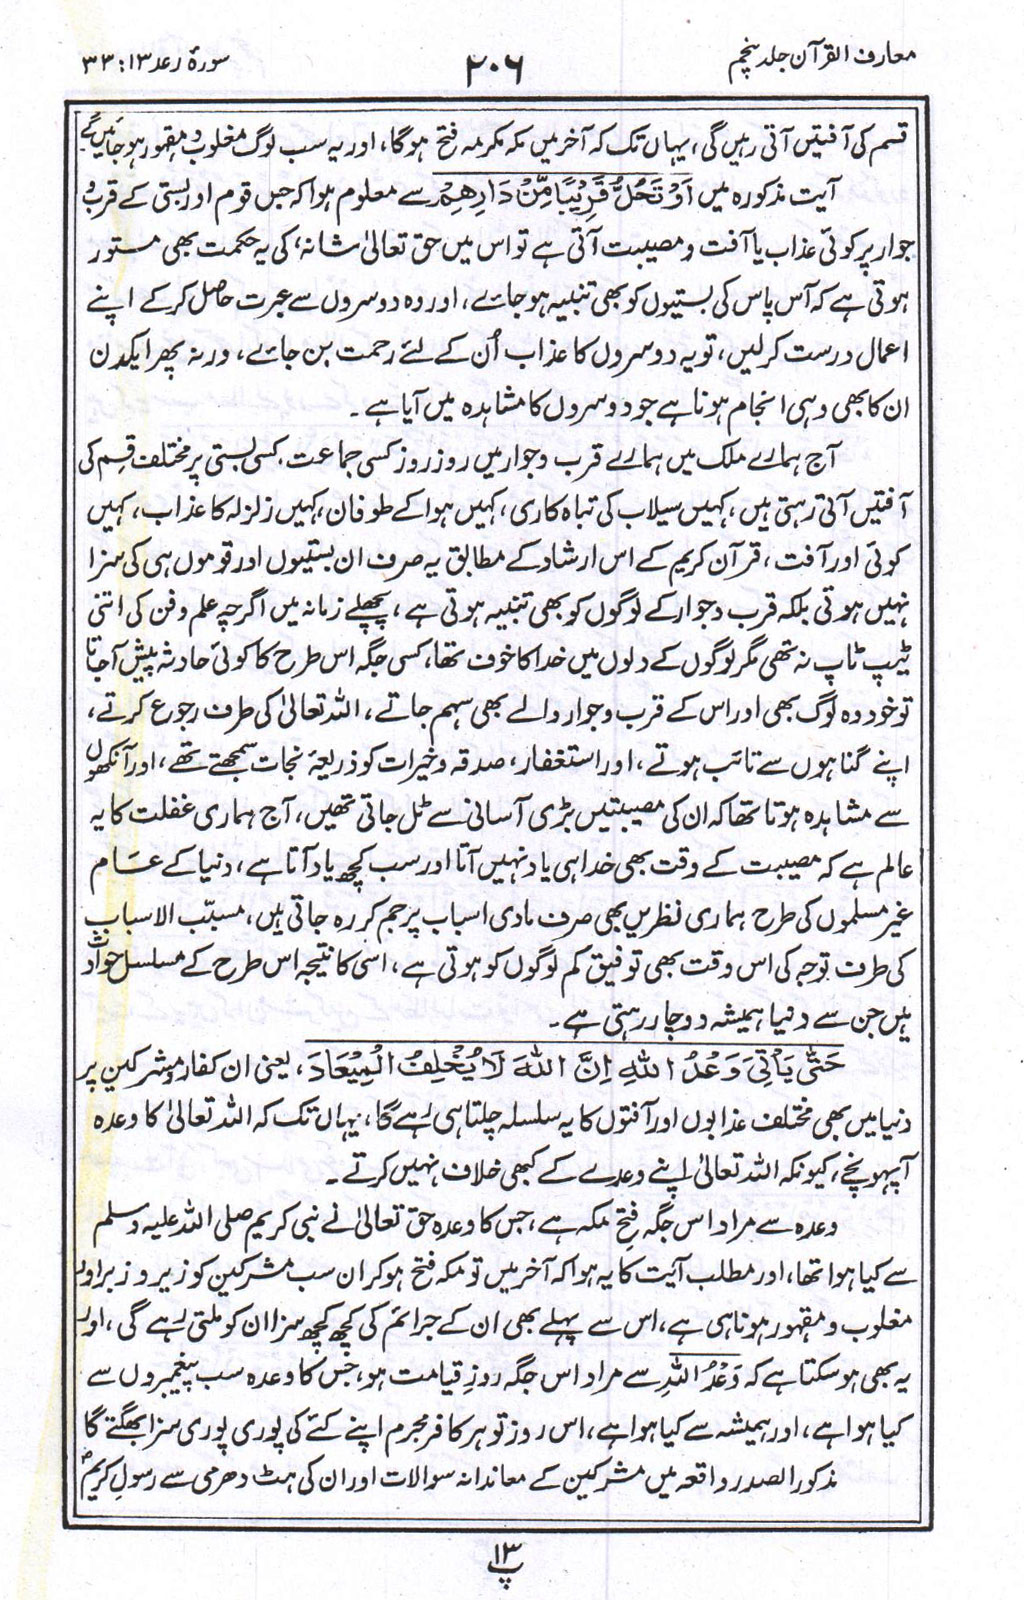 معارف القرآن جلد پنجم
۲۰۶
سورۂ رعد ۱۳ : ۳۳
قسم کی آفتیں آتی رہیں گی، یہاں تک کہ آخر میں مکہ مکرمہ فتح ہوگا، اور یہ سب لوگ مغلوب و مقہور ہو جائیں گے
آیت مذکورہ میں اَوْ تَحُلُّ قَرِيْبًا مِّنْ دَارِهِمْ سے معلوم ہوا کہ جس قوم اور بستی کے قرب و
جوار پر کوئی عذاب یا آفت و مصیبت آتی ہے تو اس میں حق تعالیٰ شانہ، کی یہ حکمت بھی مستور
ہوتی ہے کہ آس پاس کی بستیوں کو بھی تنبیہ ہو جائے، اور وہ دوسروں سے عبرت حاصل کرکے اپنے
اعمال درست کرلیں، تو یہ دوسروں کا عذاب اُن کے لئے رحمت بن جائے، ورنہ پھر ایک دن
ان کا بھی وہی انجام ہونا ہے جو دوسروں کا مشاہدہ میں آیا ہے۔
آج ہمارے ملک میں ہمارے قرب و جوار میں روز روز کسی جماعت، کسی بستی پر مختلف قسم کی
آفتیں آتی رہتی ہیں، کہیں سیلاب کی تباہ کاری، کہیں ہوا کے طوفان، کہیں زلزلہ کا عذاب، کہیں
کوئی اور آفت، قرآن کریم کے اس ارشاد کے مطابق یہ صرف ان بستیوں اور قوموں ہی کی سزا
نہیں ہوتی بلکہ قرب و جوار کے لوگوں کو بھی تنبیہ ہوتی ہے، پچھلے زمانہ میں اگرچہ علم و فن کی اتنی
ٹیپ ٹاپ نہ تھی مگر لوگوں کے دلوں میں خدا کا خوف تھا، کسی جگہ اس طرح کا کوئی حادثہ پیش آجاتا
تو خود وہ لوگ بھی اور اس کے قرب و جوار والے بھی سہم جاتے، اللہ تعالیٰ کی طرف رجوع کرتے،
اپنے گناہوں سے تائب ہوتے، اور استغفار، صدقہ و خیرات کو ذریعۂ نجات سمجھتے تھے، اور آنکھوں
سے مشاہدہ ہوتا تھا کہ ان کی مصیبتیں بڑی آسانی سے ٹل جاتی تھیں، آج ہماری غفلت کا یہ
عالم ہے کہ مصیبت کے وقت بھی خدا ہی یاد نہیں آتا اور سب کچھ یاد آتا ہے، دنیا کے عام
غیر مسلموں کی طرح ہماری نظریں بھی صرف مادی اسباب پر جم کر رہ جاتی ہیں، مسبّب الاسباب
کی طرف توجہ کی اس وقت بھی توفیق کم لوگوں کو ہوتی ہے، اسی کا نتیجہ اس طرح کے مسلسل حوادث
ہیں جن سے دنیا ہمیشہ دوچار رہتی ہے۔
حَتّٰى يَأْتِىَ وَعْدُ اللّٰهِ اِنَّ اللّٰهَ لَا يُخْلِفُ الْمِيْعَادَ، یعنی ان کفار و مشرکین پر
دنیا میں بھی مختلف عذابوں اور آفتوں کا یہ سلسلہ چلتا ہی رہے گا، یہاں تک کہ اللہ تعالیٰ کا وعدہ
آپہونچے، کیونکہ اللہ تعالیٰ اپنے وعدے کے کبھی خلاف نہیں کرتے۔
وعدہ سے مراد اس جگہ فتح مکہ ہے، جس کا وعدہ حق تعالیٰ نے نبی کریم صلی اللہ علیہ وسلم
سے کیا ہوا تھا، اور مطلب آیت کا یہ ہوا کہ آخر میں تو مکہ فتح ہو کر ان سب مشرکین کو زیر و زبر اور
مغلوب و مقہور ہونا ہی ہے، اس سے پہلے بھی ان کے جرائم کی کچھ کچھ سزا ان کو ملتی رہے گی، اور
یہ بھی ہو سکتا ہے کہ وَعْدُ اللّٰهِ سے مراد اس جگہ روزِ قیامت ہو، جس کا وعدہ سب پیغمبروں سے
کیا ہوا ہے، اور ہمیشہ سے کیا ہوا ہے، اس روز تو ہر کافر مجرم اپنے کئے کی پوری پوری سزا بھگتے گا
مذکور الصدر واقعہ میں مشرکین کے معاندانہ سوالات اور ان کی ہٹ دھرمی سے رسولِ کریمؐ
پ ۱۳